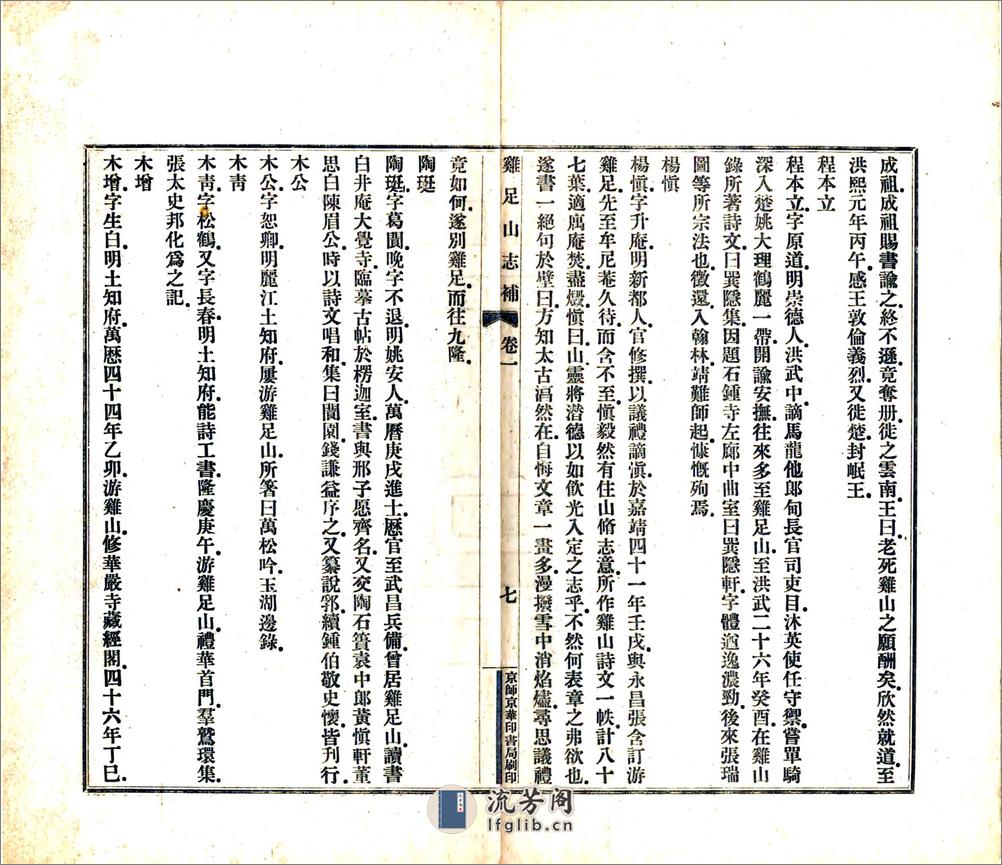 成祖。成祖賜書諭之。終不遜。竟奪册。徙之雲南。王曰。老死雞山之願酬矣。欣然就道。至
洪熙元年丙午。感王敦倫義烈。又徙楚。封岷王。
程本立
程本立。字原道。明崇德人。洪武中謫馬龍他郎甸長官司吏目。沐英使任守禦。嘗單騎
深入楚姚大理鶴麗一帶。開諭安撫。往來多至雞足山。至洪武二十六年癸酉。在雞山
錄所著詩文。曰巽隱集。因題石鍾寺左廊中曲室曰巽隱軒。字體遒逸濃勁。後來張瑞
圖等所宗法也。徵還入翰林。靖難師起。慷慨殉焉。
楊愼
楊愼。字升庵。明新都人。官修撰。以議禮謫滇。於嘉靖四十一年壬戌。與永昌張含訂游
雞足。先至牟尼菴久待。而含不至。愼毅然有住山脩志意。所作雞山詩文一帙。計八十
七葉。適寓庵焚。盡燬。愼曰。山靈將潛德以如飲光入定之志乎。不然。何表章之弗欲也。
遂書一絕句於壁曰。方知太古渢然在。自悔文章一畫多。漫撥雪中消焰燼。尋思議禮
雞足山志補 卷一 七 京師京華印書局刷印
竟如何。遂別雞足。而往九隆。
陶珽
陶珽。字葛閬。晚字不退。明姚安人。萬曆庚戌進士。歷官至武昌兵備。曾居雞足山。讀書
白井庵大覺寺。臨摹古帖於楞迦室。書與邢子愿齊名。又交陶石簣袁中郎黃愼軒董
思白陳眉公。時以詩文唱和。集曰閬園。錢謙益序之。又纂說郛續。鍾伯敬史懷。皆刊行。
木公
木公。字恕卿。明麗江土知府。屢游雞足山。所箸曰萬松吟。玉湖邊錄。
木靑
木靑。字松鶴。又字長春。明土知府。能詩工書。隆慶庚午游雞足山。禮華首門。羣鷲環集。
張太史邦化爲之記。
木增
木增。字生白。明土知府。萬曆四十四年乙卯。游雞山。修華嚴寺藏經閣。四十六年丁巳
流芳阁
lfglib.cn